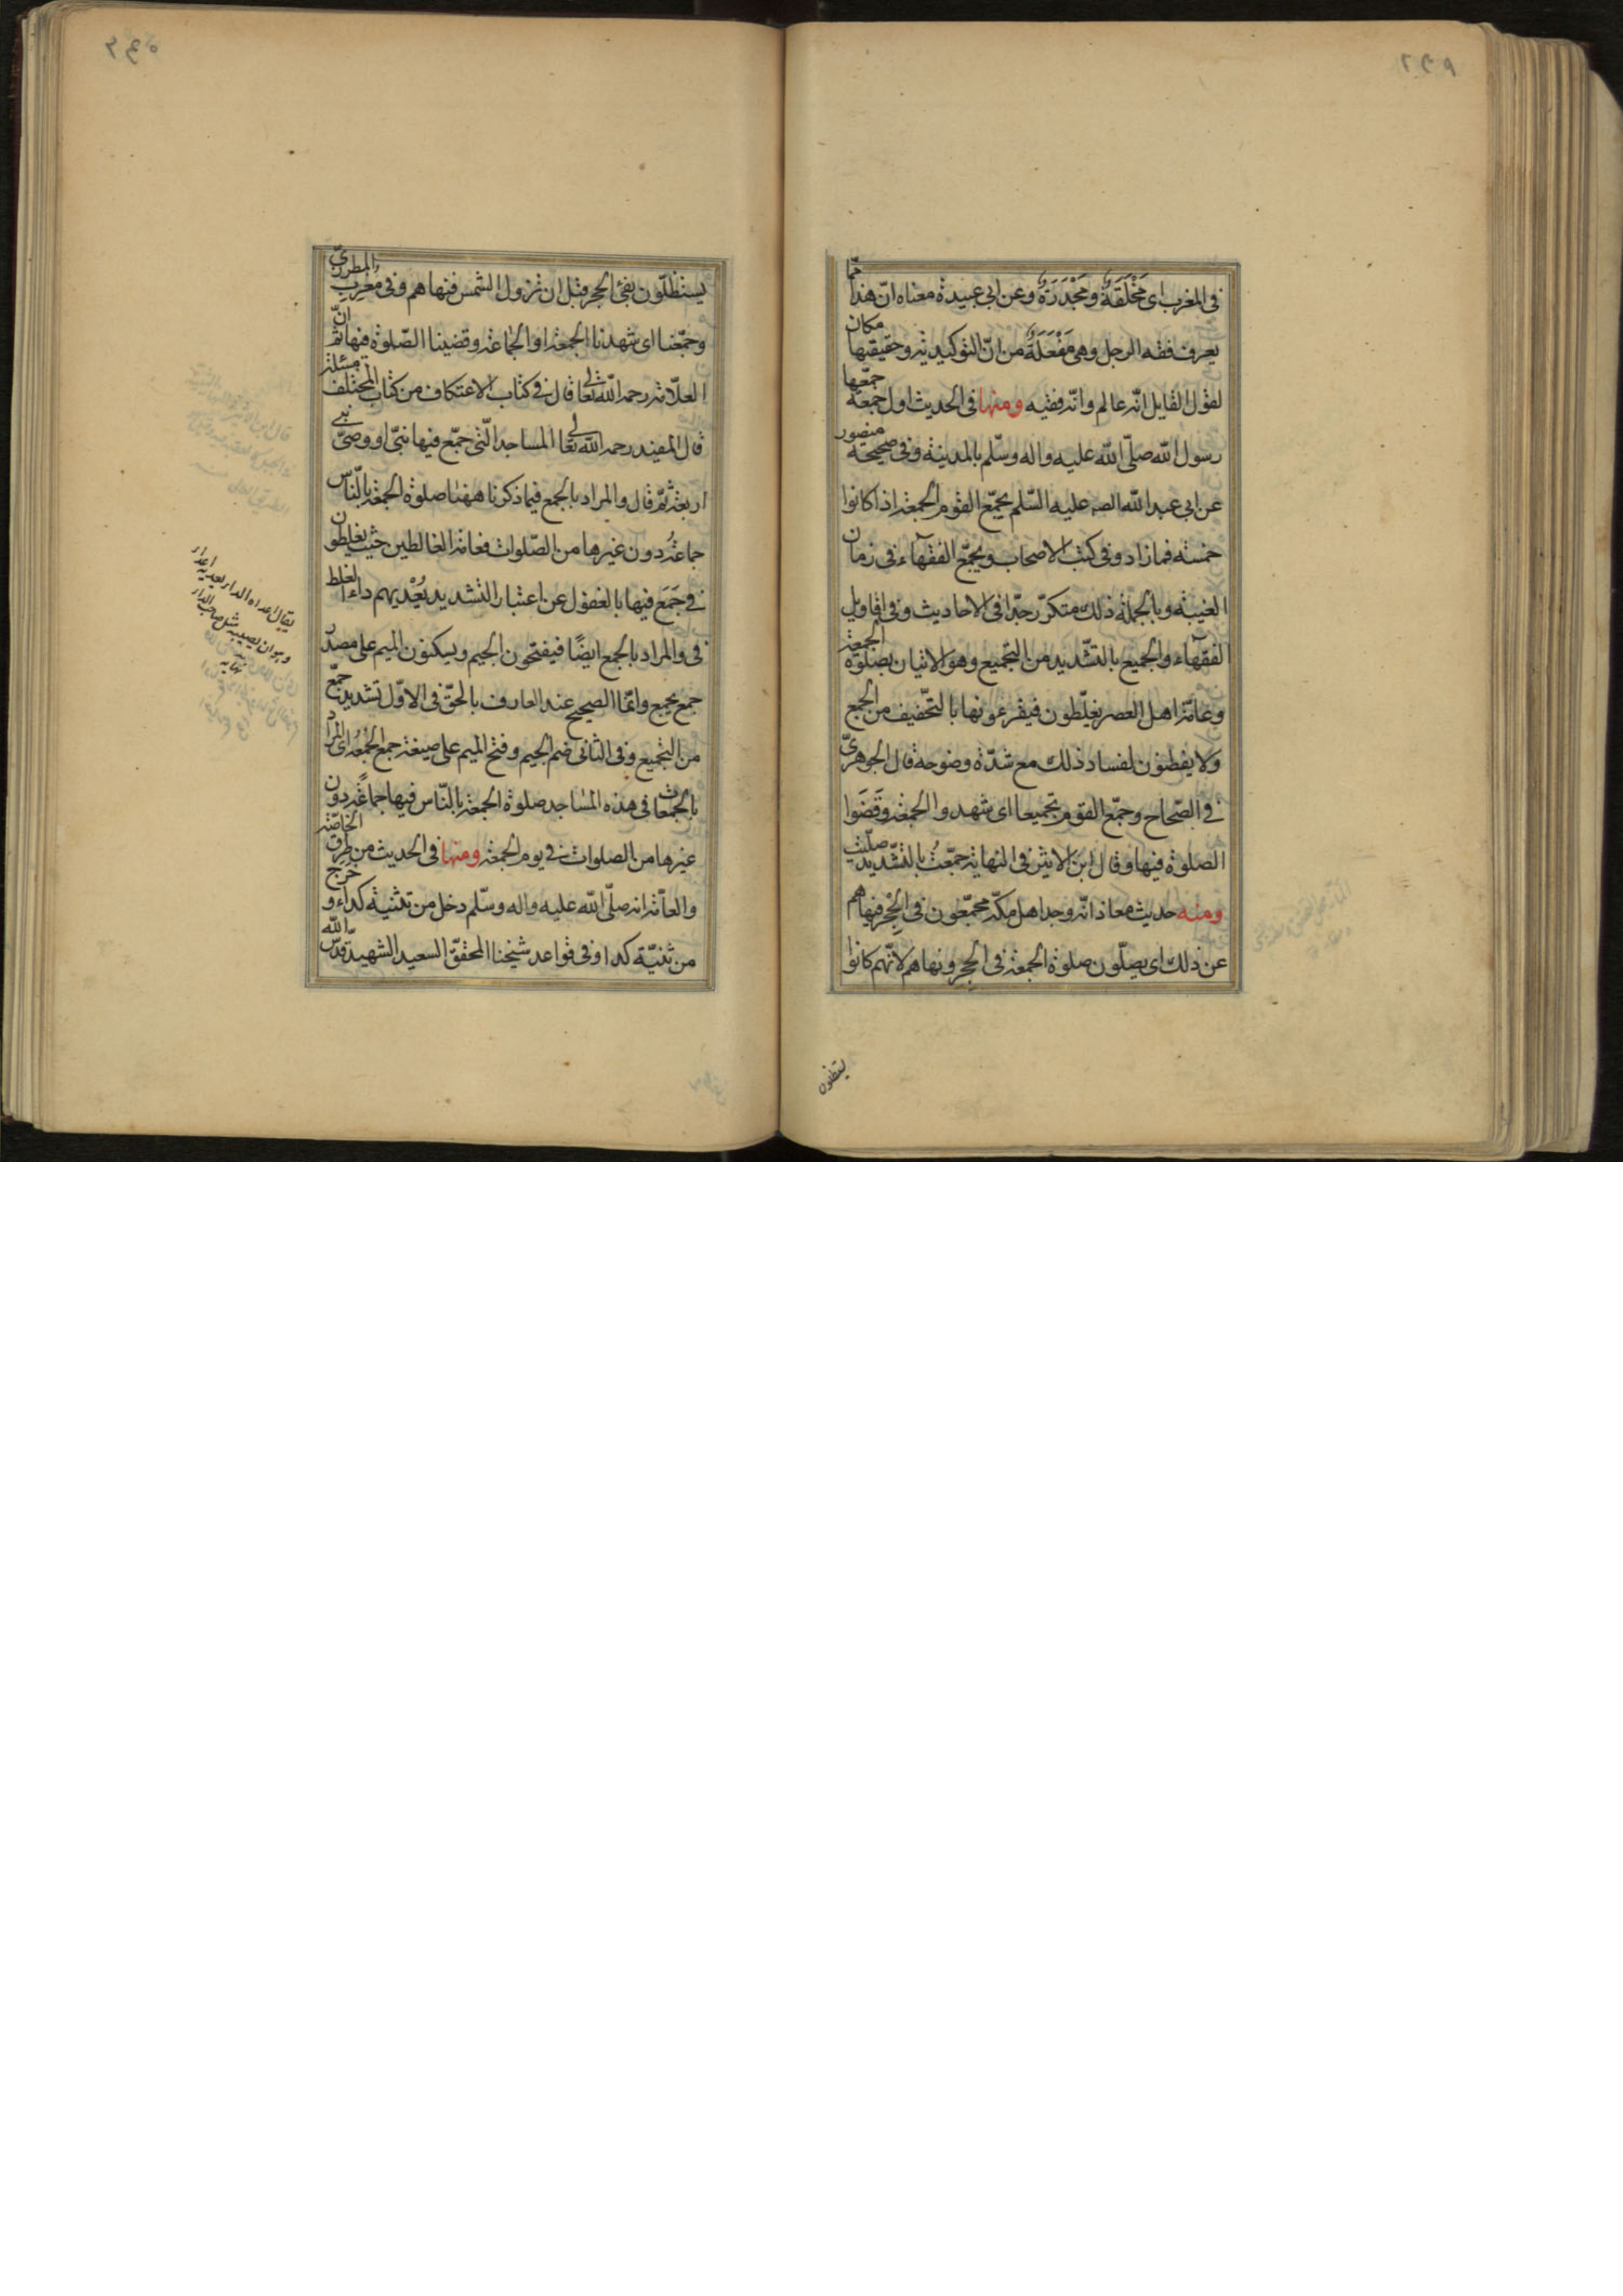 في المغرب اى مَخْلَقَةٌ ومَجْدَرَةٌ وعن ابى عبيدة معناه انّ هذا ممّا
يعرف فقه الرجل وهى مَفْعَلَةٌ من انّ التوكيدية وحقيقتها مكان
لقول القايل انّه عالم وانّه فقيه ومنها فى الحديث اول جمعة جمّعها
رسول الله صلّى الله عليه واله وسلّم بالمدينة وفى صحيحة منصور
عن ابى عبد الله الصه عليه السّلم يجمّع القوم الجمعة اذا كانوا
خمسة فما زاد وفى كتب الاصحاب ويجمّع الفقهآء فى زمان
الغيبة وبالجملة ذلك متكرّر جدّا فى الاحاديث وفى اقاويل
الفقهآء والجميع بالتشّديد من التجميع وهو الاتيان بصلوة الجمعة
وعامّة اهل العصر يغلّطون فيقرءونها بالتخّفيف من الجمع
ولا يفطنون لفساد ذلك مع شدّة وضوحه قال الجوهرىّ
في الصّحاح وجمّع القوم تجميعا اى شهدوا الجمعة وقَضَوا
الصلوة فيها وقال ابن الاثير فى النهاية جمّعتُ بالتشّديد صلّيت
ومنه حديث معاذ انّه وجد اهل مكّة مجمّعون فى الحِجْر فنهاهم
عن ذلك اى يصلّون صلوة الجمعة فى الحجر ونهاهم لانّهم كانوا
يستظلون
يستظلّون بفىء الحجر قبل ان تزول الشمس فنهاهم وفى مغرب المطرزىّ
وجمّعنا اى شهدنا الجمعة او الجماعة وقضينا الصّلوة فيها ثم انّ
العلّامة رحمه الله تعالى قال في كتاب الاعتكاف من كتاب المختلف مسئلة
قال المفيد رحمه الله تعالى المساجد الّتى جمّع فيها نبىّ او وصىّ نبى
اربعة ثمّ قال والمراد بالجمع فيما ذكرنا ههنا صلوة الجمعة بالنّاس
جماعةً دون غيرها من الصّلوات فعامّة الغالطين حيث يغلطون
في جَمَعَ فيها بالغفول عن اعتبار التشديد يُعْديهم داء الغلط
فى والمراد بالجمع ايضًا فيفتحون الجيم ويسكنون الميم على مصدر
جمع يجمع وانمّا الصحيح عند العارف بالحقّ فى الاوّل تشديد جمّع
من التجميع وفى الثانى ضم الجيم وفتح الميم على صيغة جمع الجمعة اى المراد
بالجمعات فى هذه المساجد صلوة الجمعة بالنّاس فيها جماعةً دون
غيرها من الصلوات في يوم الجمعة ومنها فى الحديث من طرق الخاصّة
والعامّة انه صلّى الله عليه واله وسلّم دخل من ثنية كداء وخرج
من ثنيّة كدا وفى قواعد شيخنا المحقّق السعيد الشهيد قدّس الله
يقال اعداه الدار يعديه اعدار
وهو ان يصيبه مثل صاحب الدار
نهايه